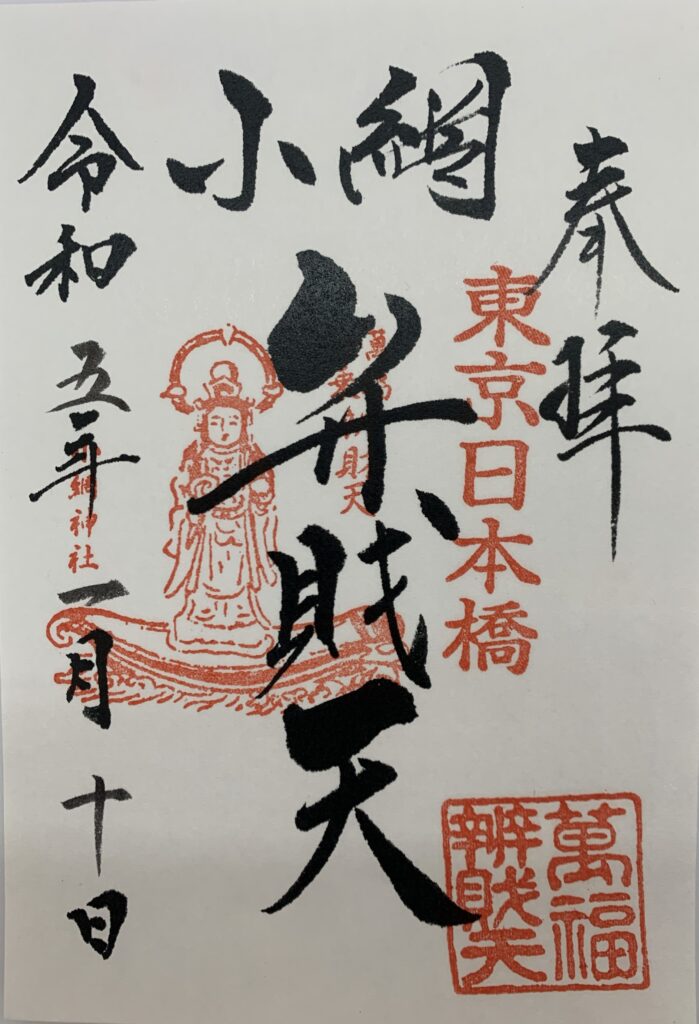 奉拝
東京日本橋
小網
弁財天
萬福
財天
網神社
令和五年一月十日
萬福
辨財天